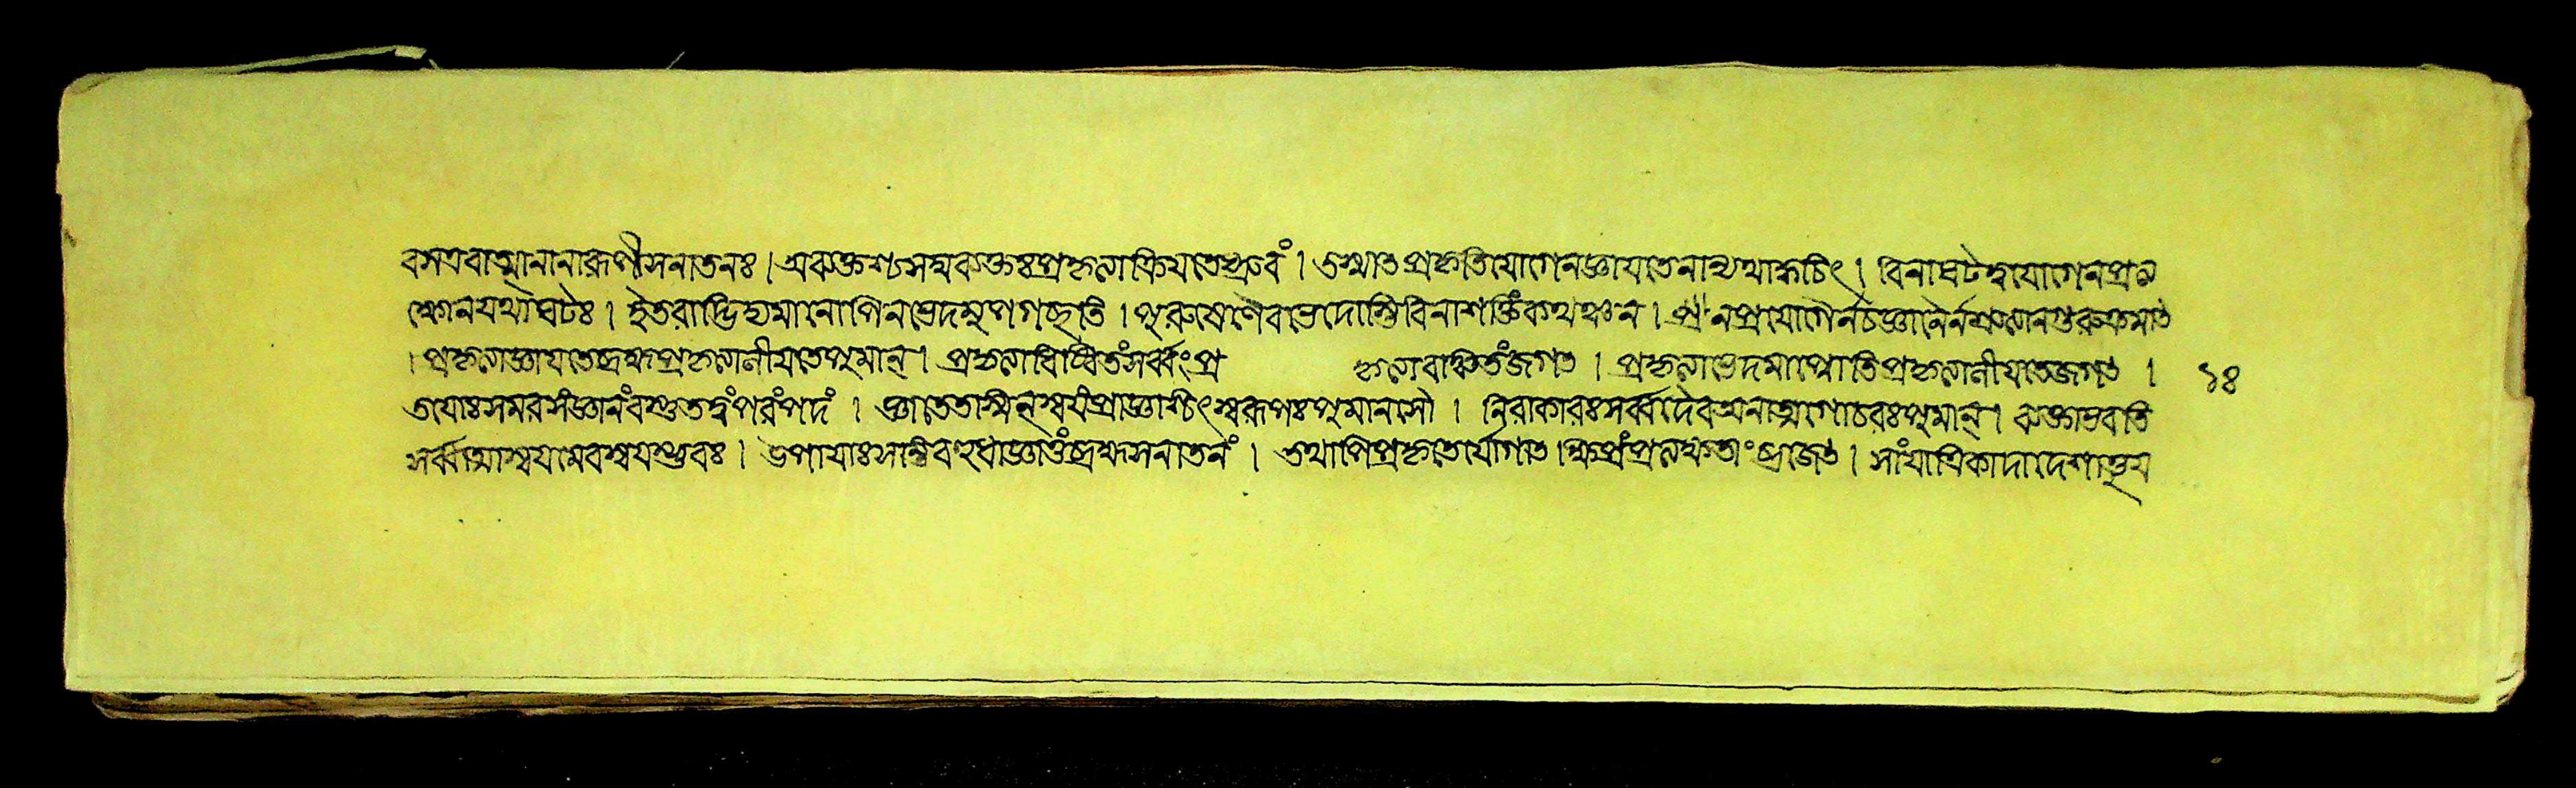 বসএবাত্মানানারূপীসনাতনঃ । অব্যক্তশ্চসয়ব্যক্তঃপ্রকৃত্যাক্রিয়তেধ্রুবং । তস্মাতপ্রকৃতিযোগেনজ্ঞায়তেনান্যথাক্বচিৎ । বিনাঘটত্বযোগেনপ্রত্য
ক্ষোনযথাঘটঃ । ইতরাদ্ভিদ্যমানোপিনভেদমুপগচ্ছতি । পুরুষেণৈবভেদোস্তিবিনাশক্তিংকথঞ্চন । নপ্রযোগৈর্নচজ্ঞানৈর্নশ্রুত্যানগুরুক্রমাত
। প্রকৃত্যাজ্ঞায়তেব্রহ্মপ্রকৃত্যানীয়তেপুমান্ । প্রকৃত্যাধিষ্ঠিতংসর্ব্বংপ্র কৃত্যাবাঞ্চিতংজগত । প্রকৃত্যাভেদমাপ্নোতিপ্রকৃত্যানীয়তেজগত । ১৪
তয়োঃসমরসংজ্ঞানংবস্তুতত্বংপরংপদং । জ্ঞাতেতস্মিন্স্বয়ংপ্রাজ্ঞশ্চিৎস্বরূপঃপুমানসৌ । নিরাকারঃসর্ব্বদৈবঅনাত্মগোচরঃপুমান্ । ব্যক্তোভবতি
সর্ব্বাত্মাস্বয়মেবস্বয়ম্ভুবঃ । উপায়াঃসন্তিবহুধাজ্ঞাতুংব্রহ্মসনাতনং । তথাপিপ্রকৃতের্যোগাত ক্ষিপ্রংপ্রত্যক্ষতাংব্রজেত । সাংযাত্রিকাদাদেশাদ্ভূয়